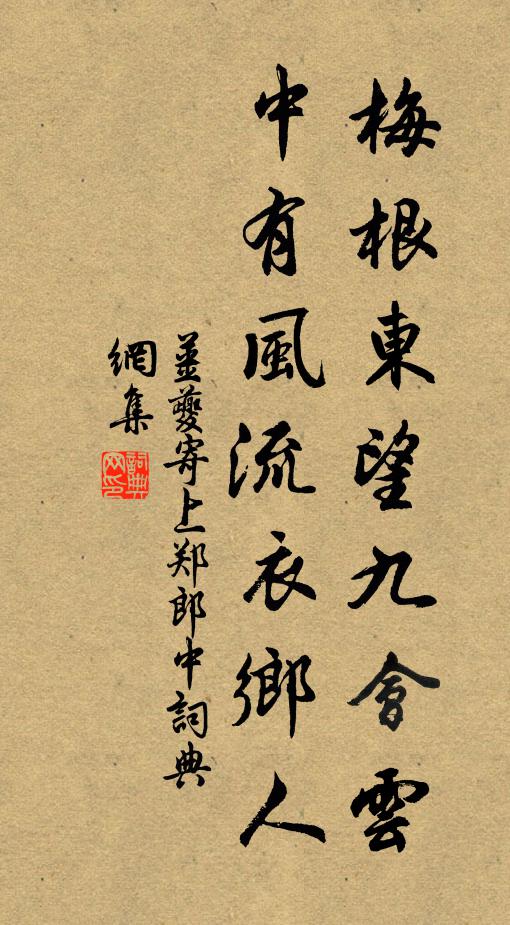 梅根東望九會雲
中有風流衣鄉人
姜夔寄上郑郎中詞典
網集
詞典網印